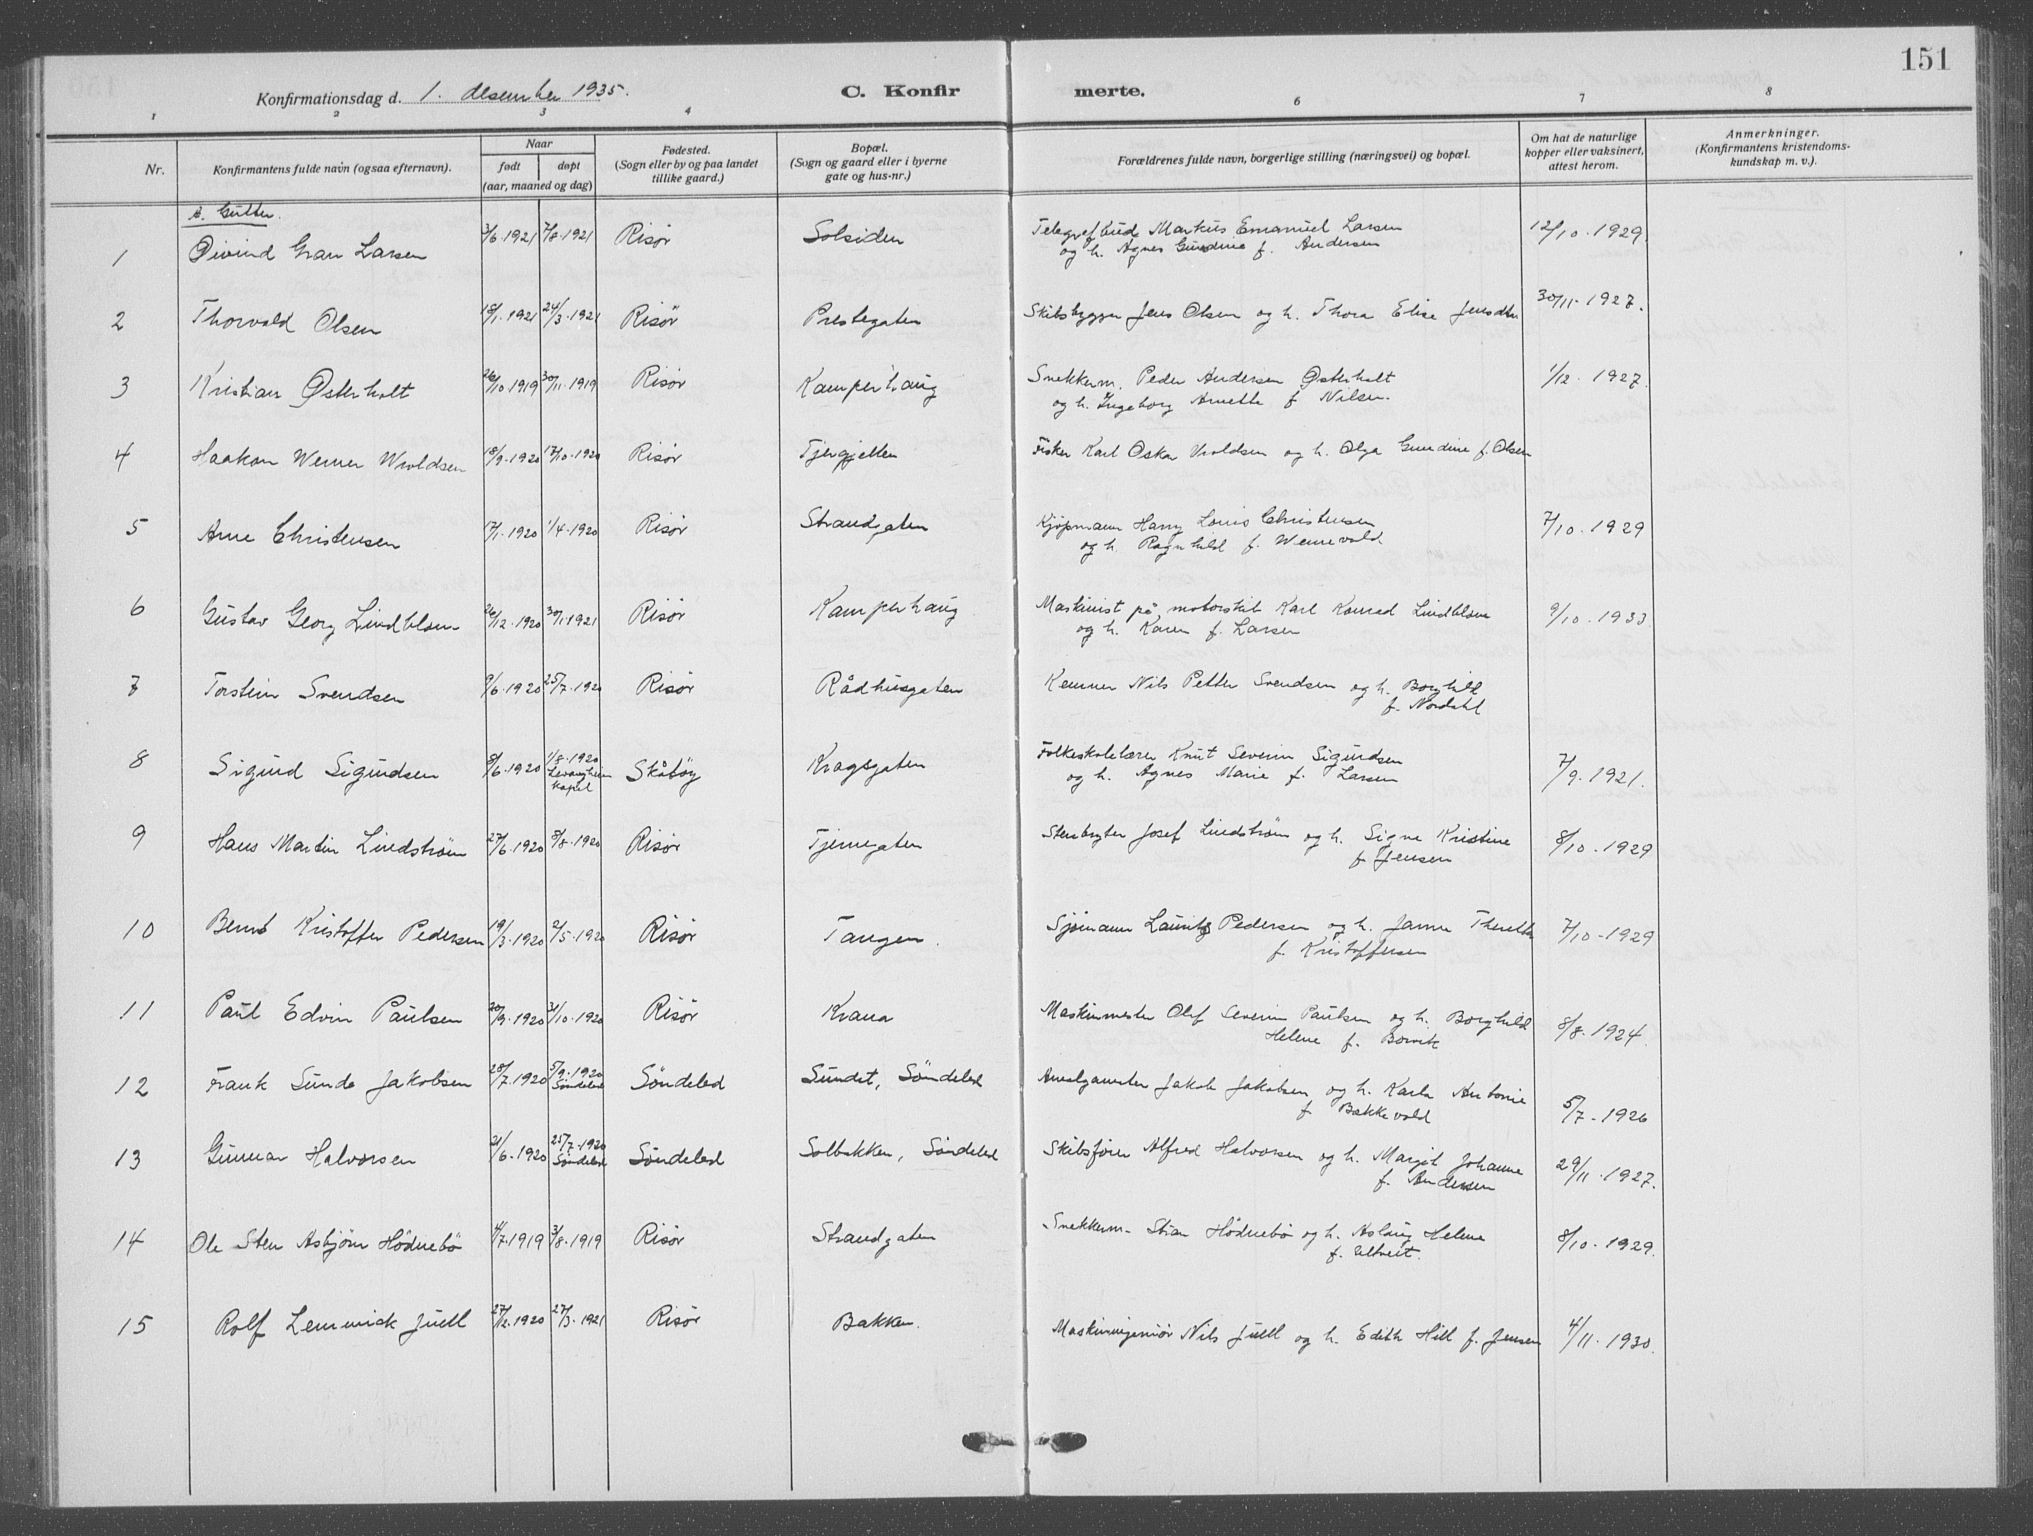 151
Konfirmationsdag d. 1. desember 1935.
C. Konfir
merte.
1 2 3 4 6 7 8
Nr.
Konfirmantens fulde navn (ogsaa efternavn).
Naar
født
døpt
(aar, maaned og dag)
Fødested.
(Sogn eller by og paa landet
tillike gaard.)
Bopæl.
(Sogn og gaard eller i byerne
gate og hus-nr.)
Forældrenes fulde navn, borgerlige stilling (næringsvei) og bopæl.
Om hat de naturlige
kopper eller vaksinert,
attest herom.
Anmerkninger.
(Konfirmantens kristendoms-
kundskap m. v.).
A. Gutter.
1 Øivind Gran Larsen 3/6-1921 7/8-1921 Risør Solsiden Telegrafbud Markus Emanuel Larsen 12/10-1929
og h. Agnes Gundine f. Andersen
2 Thorvald Olsen 18/1-1921 24/3-1921 Risør Prestegaten Skibsbygger Jens Olsen og h. Thora Elise Jensdtr 30/11-1927.
3 Kristian Østerholt 26/10 1919 30/11-1919 Risør Kamperhaug Snekkerm. Peder Andersen Østerholt 1/12-1927.
og h. Ingeborg Anette f Nilsen.
4 Haakon Werner Wroldsen 18/9-1920 17/10-1920 Risør Tjergjetten Fisker Karl Oskar Vroldsen og h. Olga Gundine f. Olsen
5 Arne Christensen 17/1-1920 1/4-1920 Risør Strandgaten Kjøpmann Harry Louis Christensen 7/10-1929
og h. Ragnhild f. Wennevold
6 Gustav Georg Lindblom 26/12-1920 30/1-1921 Risør Kamperhaug Maskinist på motorskib Karl Konrad Lindblom 9/10-1933
og h. Karen f. Larsen
7 Torstein Svendsen 9/6-1920 25/7-1920 Risør Rådhusgaten Kemner Nils Petter Svendsen og h. Borghild
f. Nordahl
8 Sigurd Sigurdsen 8/6-1920 1/8-1920 Levangheim kapel Skåtøy Kragsgaten Folkeskolelærer Knut Severin Sigurdsen 7/9-1921.
og h. Agnes Marie f. Larsen
9 Hans Martin Lindstrøm 27/6-1920 8/8-1920 Risør Tjernegaten Stenbryter Josef Lindstrøm og h. Signe Kristine 8/10-1929
f. Jensen
10 Bernt Kristoffer Pedersen 19/3-1920 2/5-1920 Risør Tangen. Sjømann Lauritz Pedersen og h. Janna Therette 7/10-1929
f. Kristoffersen
11 Paul Edvin Paulsen 20/9-1920 31/10-1920 Risør Krana Maskinmester Olaf Severin Paulsen og h. Borghild 8/8-1924.
Helene f. Borvik
12 Frank Sunde Jakobsen 28/7-1920 5/9-1920 Søndeled Søndeled Sundet, Søndeled Jakob Jakobsen og h. Karla Antonie 5/7-1926
f Bakkevold
13 Gunnar Halvorsen 21/6-1920 25/7-1920 Søndeled Søndeled Solbakken, Søndeled Skibsfører Alfred Halvorsen og h. Margit Johanne 29/11-1927.
f. Andersen
14 Ole Sten Asbjørn Hødnebø 4/7-1919 3/8-1919 Risør Strandgaten Snekkerm. Stian Hødnebø og h. Aslaug Helene 8/10-1929.
f. Ultveit.
15 Rolf Lemmick Juell 27/12-1920 27/3-1921 Risør Bakken. Maskiningeniør Nils Juell og h. Edith Hill f. Jensen 4/11-1930.